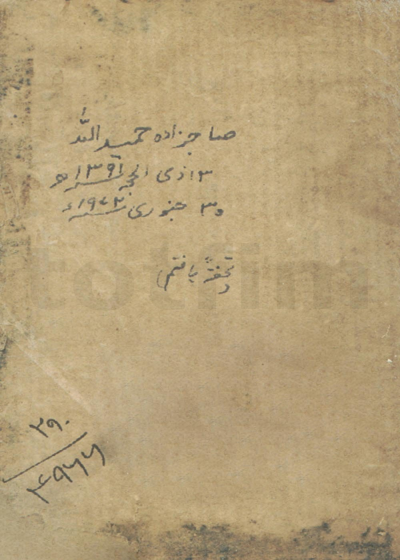 صاحبزادہ حمید اللہ
۱۳ ذی الحجہ ۱۳۹۱ھ
۳۰ جنوری ۱۹۷۲ء
تحفۃً یافتم
۲۹۰
۴۹۶۶